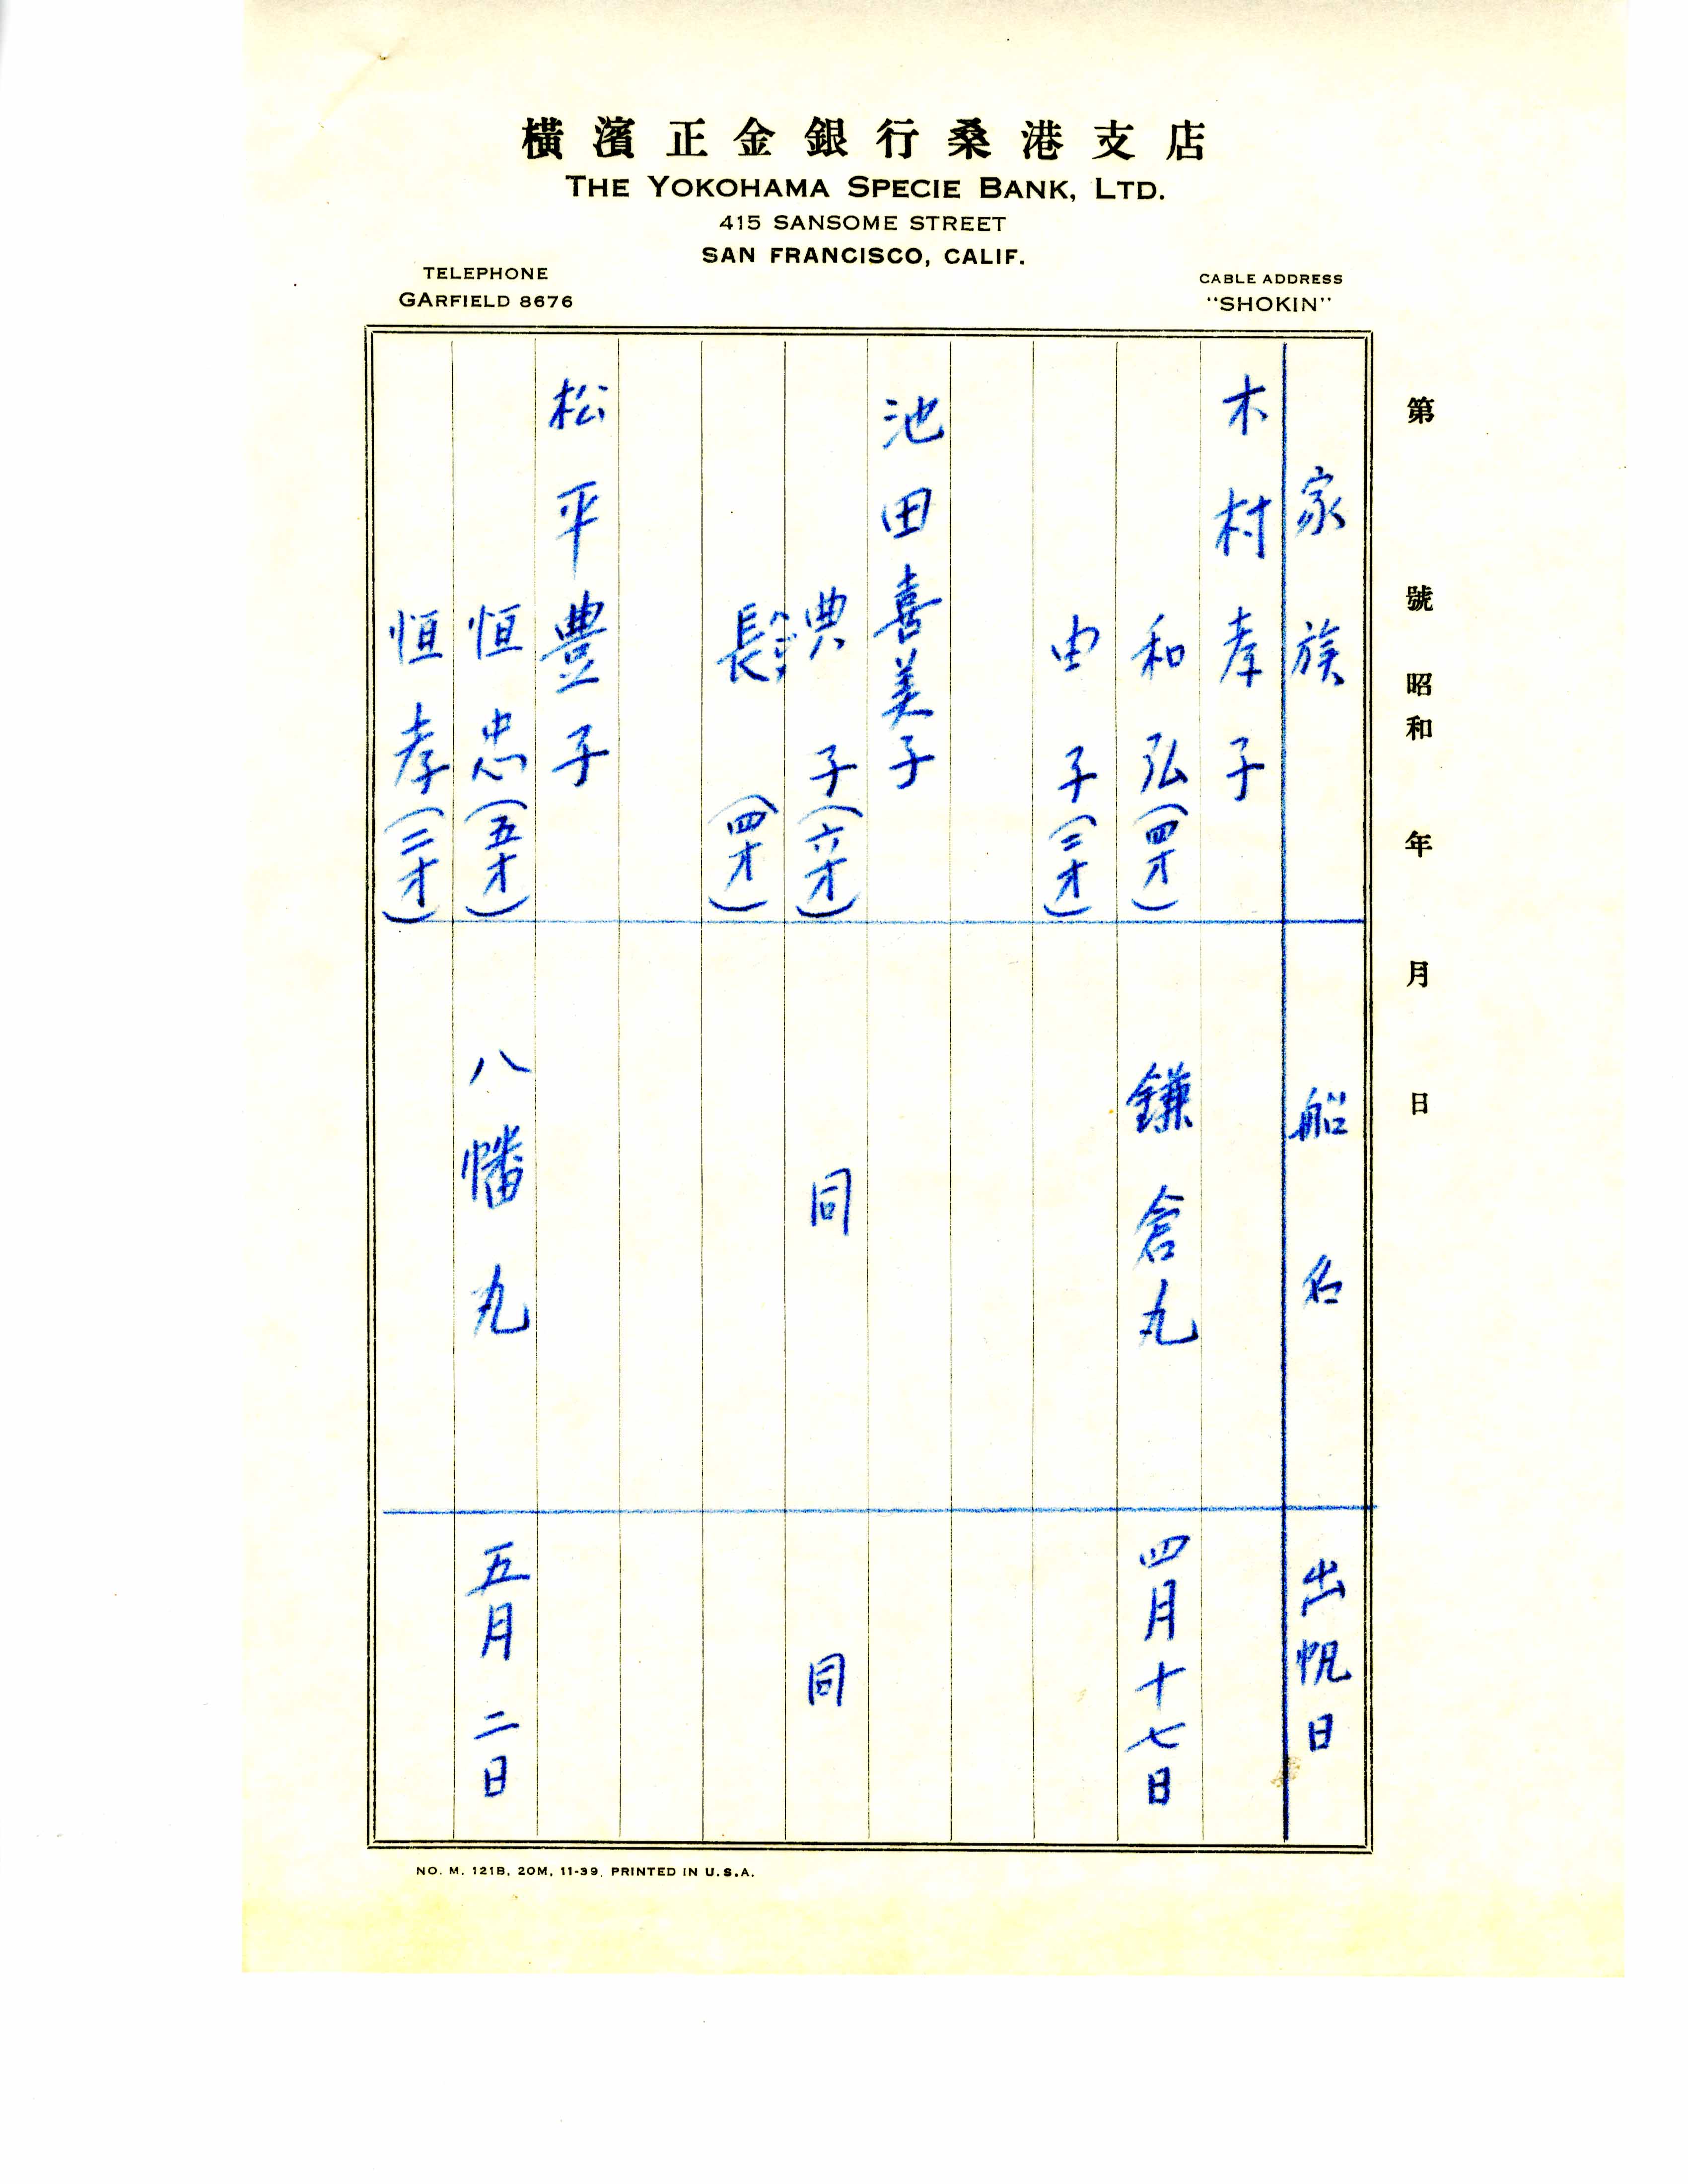 橫濱正金銀行桑港支店
THE YOKOHAMA SPECIE BANK, LTD.
415 SANSOME STREET
SAN FRANCISCO, CALIF.
TELEPHONE
GARFIELD 8676
CABLE ADDRESS
"SHOKIN"
第 號 昭和 年 月 日
家族 船名 出帆日
木村孝子
和弘(四才) 鎌倉丸 四月十七日
由子(三才)
池田喜美子
典子(六才) 同 同
長(四才)
松平豊子
恒忠(五才) 八幡丸 五月二日
恒孝(二才)
NO. M. 121B, 20M, 11-39, PRINTED IN U.S.A.